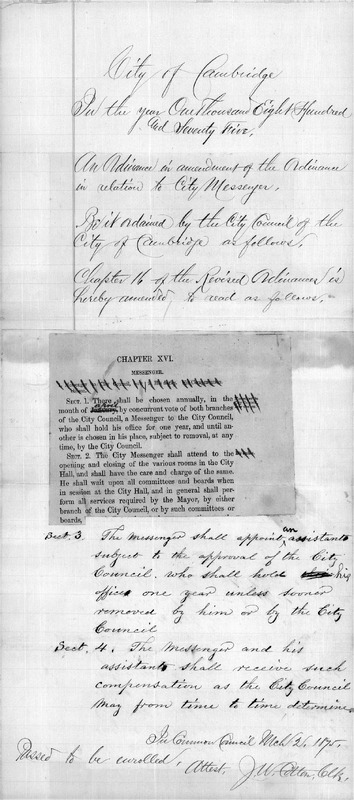 City of Cambridge
In the year One Thousand Eight Hundred
and Seventy Five.
An Ordinance in amendment of the Ordinance
in relation to City Messenger.
Be it ordained by the City Council of the
City of Cambridge as follows.
Chapter 16 of the Revised Ordinances is
hereby amended, to read as follows.
CHAPTER XVI.
MESSENGER.
SECT. 1. There shall be chosen annually, in the
month of April, by concurrent vote of both branches
of the City Council, a Messenger to the City Council,
who shall hold his office for one year, and until an-
other is chosen in his place, subject to removal, at any
time, by the City Council.
SECT. 2. The City Messenger shall attend to the
opening and closing of the various rooms in the City
Hall, and shall have the care and charge of the same.
He shall wait upon all committees and boards when
in session at the City Hall, and in general shall per-
form all services required by the Mayor, by either
branch of the City Council, or by such committees or
boards.
Sect. 3. The Messenger shall appoint an assistant
subject to the approval of the City
Council, who shall hold his
office one year unless sooner
removed by him or by the City
Council
Sect. 4. The Messenger and his
assistant shall receive such
compensation as the City Council
may from time to time determine.
In Common Council Mch 24, 1875.
Passed to be enrolled, Attest, J. W. Cotton, Clk.